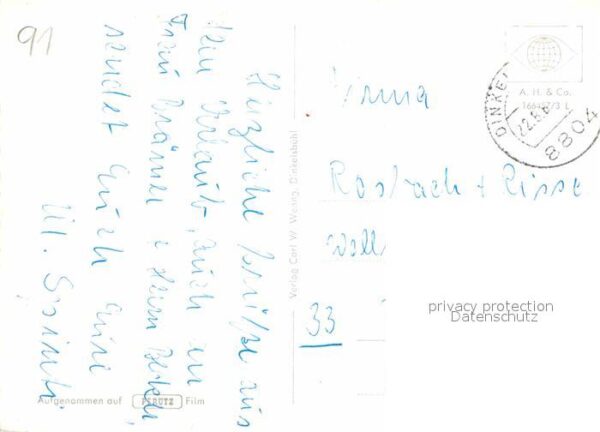 91
Herzliche Grüße aus
dem Urlaub, auch an
Frau Krämer & Herrn
sendet Euch Eure
Ul.
Firma
Rosbach + Risse
33
A. H. & Co.
DINKEL
22.5.6
8804
Verlag Carl W. Wenng, Dinkelsbühl
Aufgenommen auf PERUTZ Film
privacy protection
Datenschutz